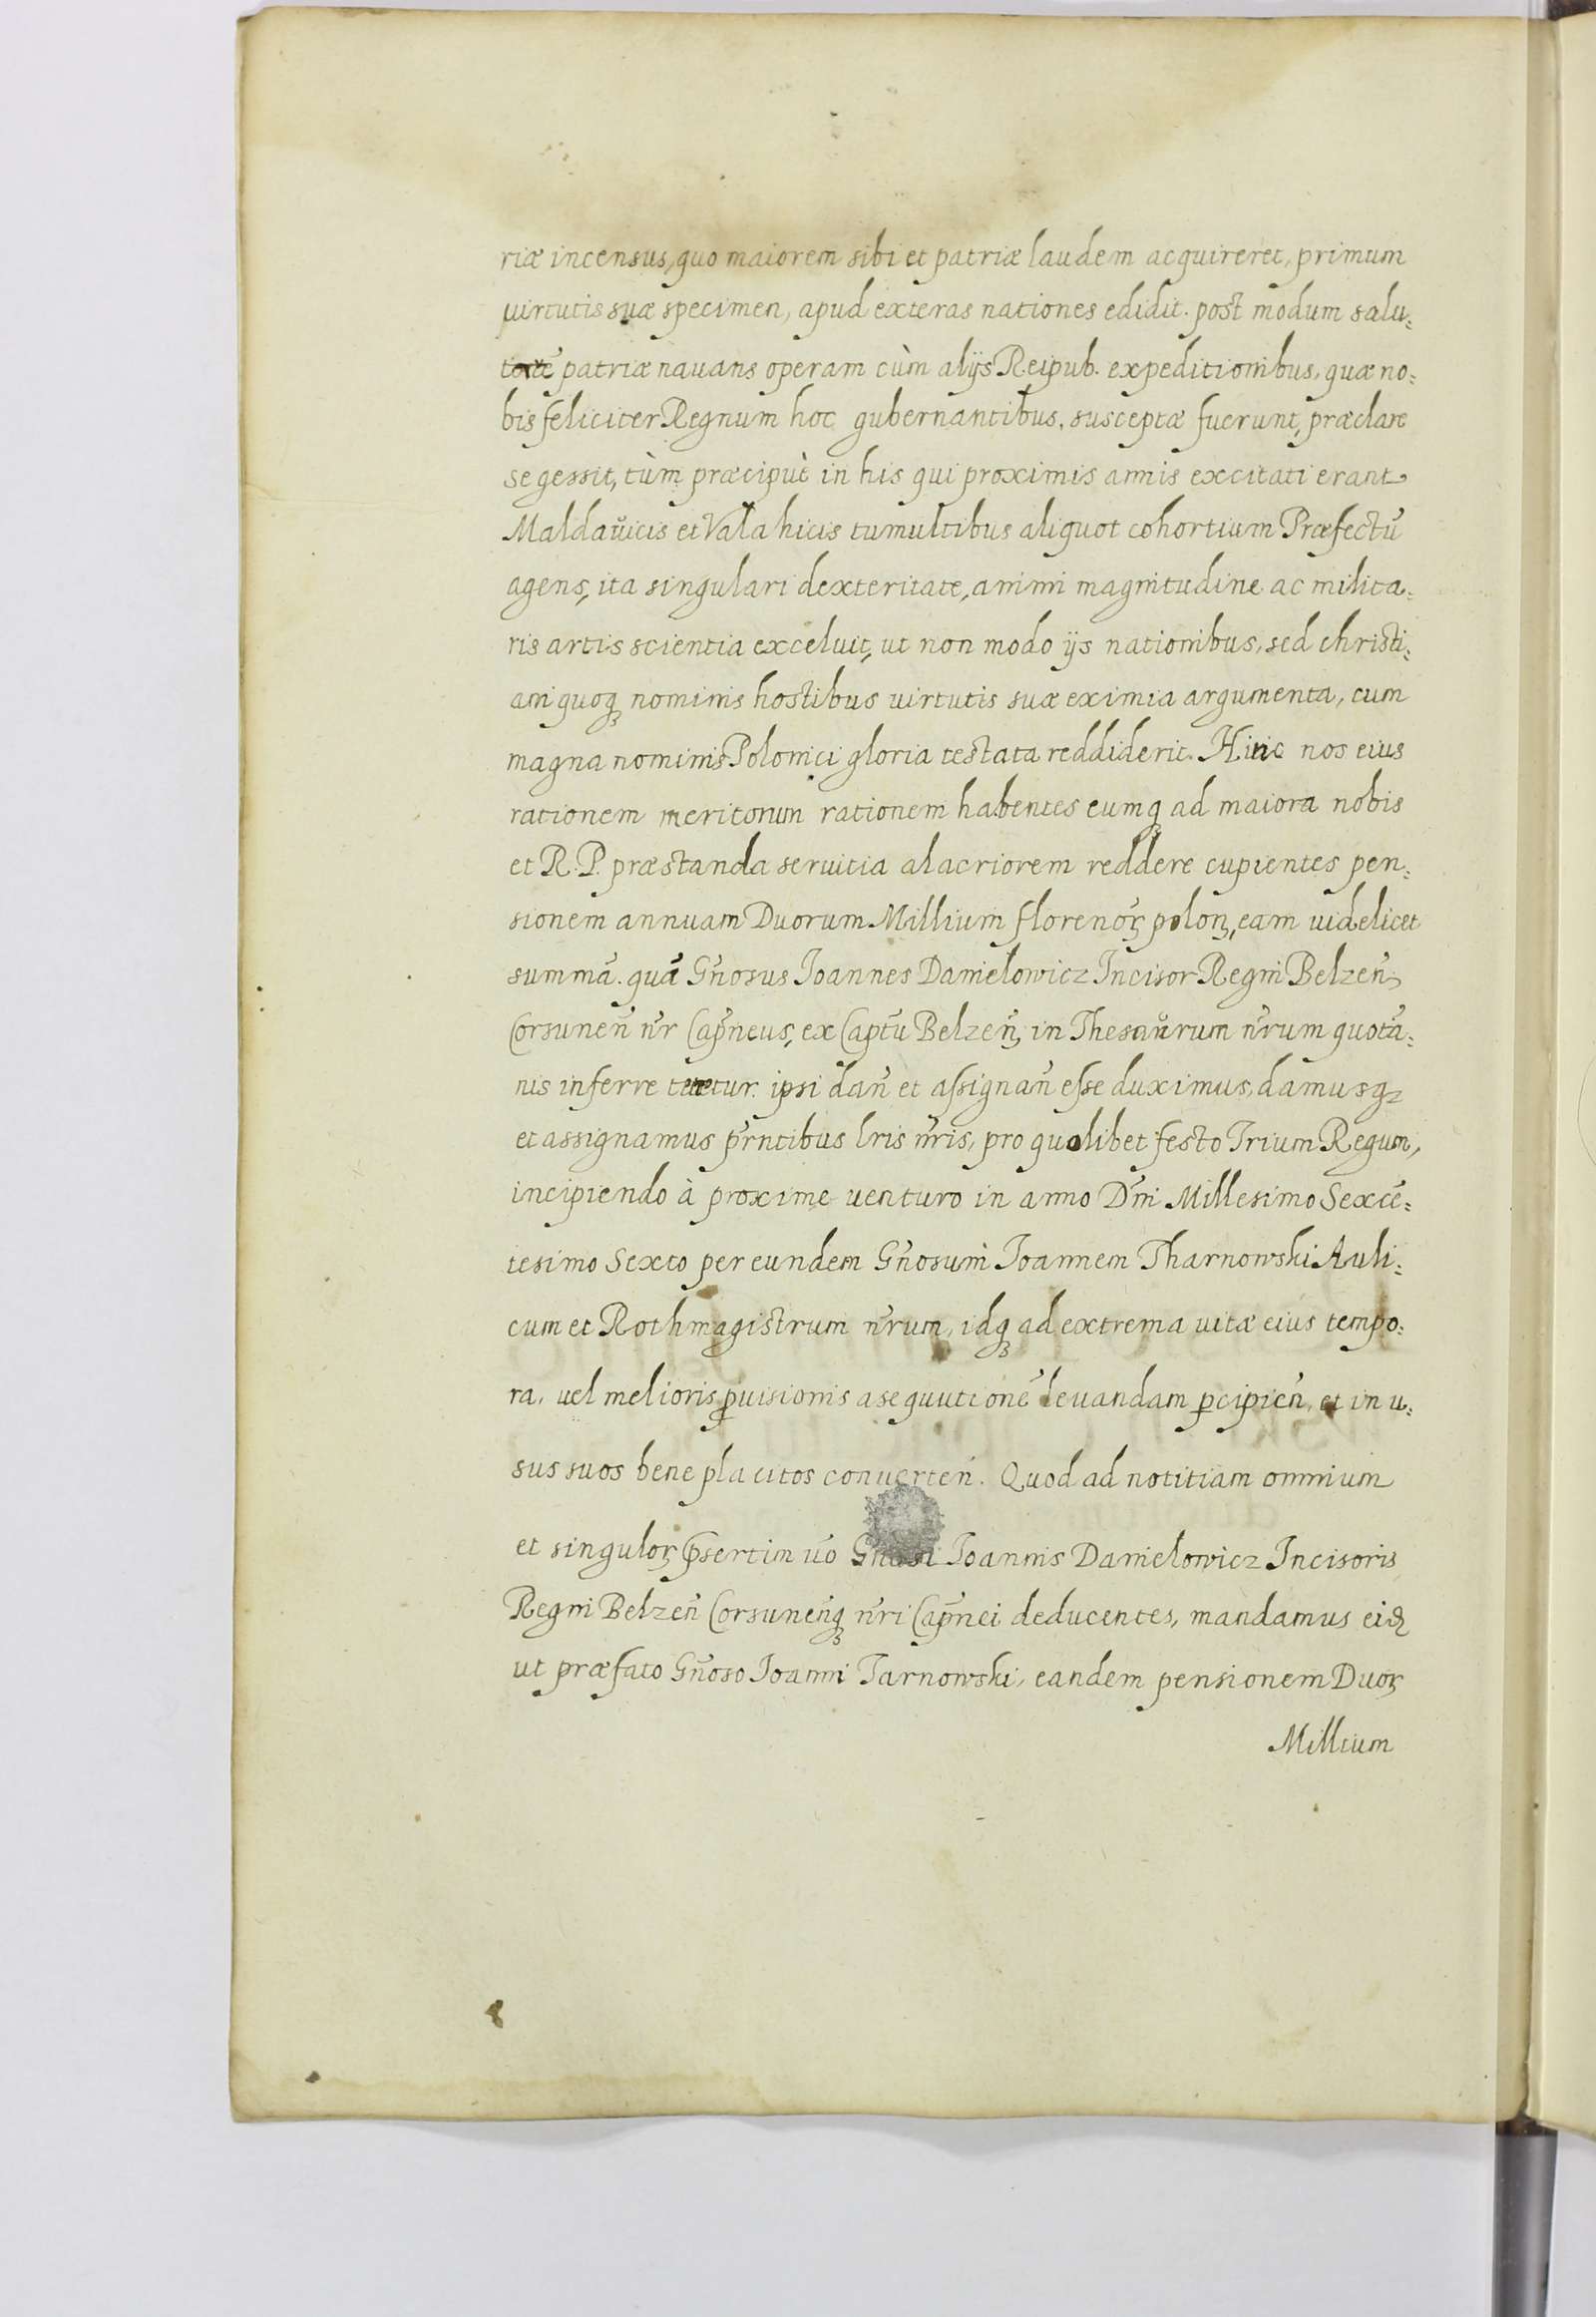 riæ incensus, quo maiorem sibi et patriæ laudem acquireret, primum
uirtutis suæ specimen, apud exteras nationes edidit. post modum salu:
patriæ nauans operam cùm alijs Reipub. expeditionibus, quæ no:
bis feliciter Regnum hoc gubernantibus, susceptæ fuerunt, præclare
se gessit, tùm præcipùt in his qui proximis annis excitati erant
Maldaŭicis et Valahicis tumultibus aliquot cohortium Præfectū
agens, ita singulari dexteritate, animi magnitudine ac milita:
ris artis scientia exceluit, ut non modo ijs nationibus, sed christi:
ani quoqꝫ nominis hostibus uirtutis suæ eximia argumenta, cum
magna nominis Polonici gloria testata reddiderit. Hinc nos eius
rationem meritorum rationem habentes eumqꝫ ad maiora nobis
et R. P. præstanda seruitia alacriorem reddere cupientes pen:
sionem annuam Duorum Millium florenoꝝ polon, eam uidelicet
summā. quā Gn̄osus Ioannes Danielowicz Incisor Regni Belzen̄
Corsunen̄ n̄r Cap̄neus, ex Captū Belzen̄, in Thesaŭrum n̄rum quotā:
nis inferre tenetur. ipsi dan̄ et assignan̄ esse duximus, damusqꝫ
et assignamus p̄rntibus lris n̄ris, pro quolibet festo Trium Regum,
incipiendo à proxime uenturo in anno Dn̄i Millesimo Sexcē:
tesimo Sexto per eundem Gn̄osum Ioannem Tharnowski Auli:
cum et Rothmagistrum n̄rum, idqꝫ ad extrema uitæ eius tempo:
ra. uel melioris ꝓuisionis asequutionē leuandam ꝑcipien̄, et in u:
sus suos bene placitos conuerten̄. Quod ad notitiam omnium
et singuloꝝ p̄sertim ūo Gn̄osi Ioannis Danielowicz Incisoris
Regni Belzen̄ Corsunen̄qꝫ n̄ri Cap̄nei deducentes, mandamus eiđ
ut præfato Gn̄oso Ioanni Tarnowski, eandem pensionem Duoꝝ
Millium